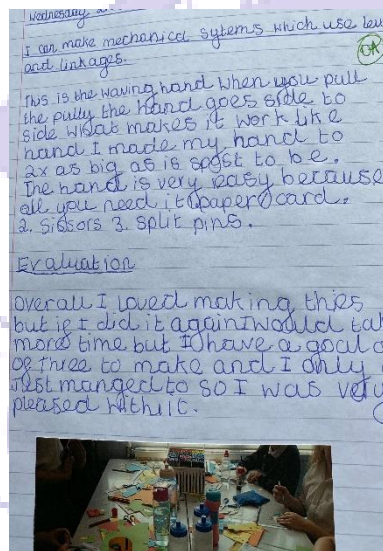 Wednesday
I can make mechanical sytems which use
and linkages.
OA
This is the waving hand when you pull
the pully the hand goes side to
side what makes it work like
hand I made my hand to
2x as big as is sopst to be.
The hand is very easy because
all you need it 1 paper card.
2. Sissors 3. split pins.
Evaluation
Overall I loved making thies
but if I did it again I would
more time but I have a goal
Of three to make and I only
Just manged to so I was very
pleased with